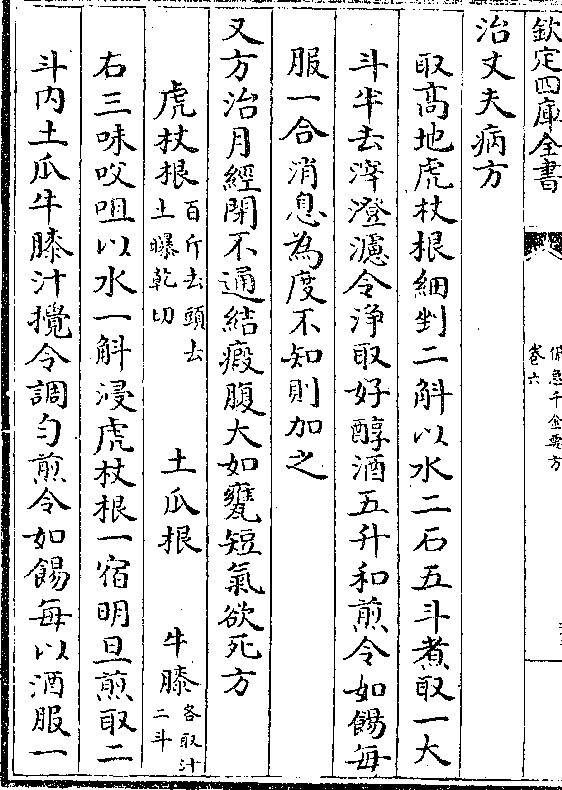 欽定四庫全書
備急千金要方
卷六
治丈夫病方
取髙地虎杖根細剉二斛以水二石五斗煮取一大
斗半去滓澄濾令浄取好醇酒五升和煎令如餳每
服一合消息為度不知則加之
又方治月經閉不通結瘕腹大如甕短氣欲死方
虎杖根百斤去頭去土曝乾切　土瓜根　牛膝各取汁二斗
右三味㕮咀以水一斛浸虎杖根一宿明旦煎取二
斗内土瓜牛膝汁攪令調勻煎令如餳每以酒服一